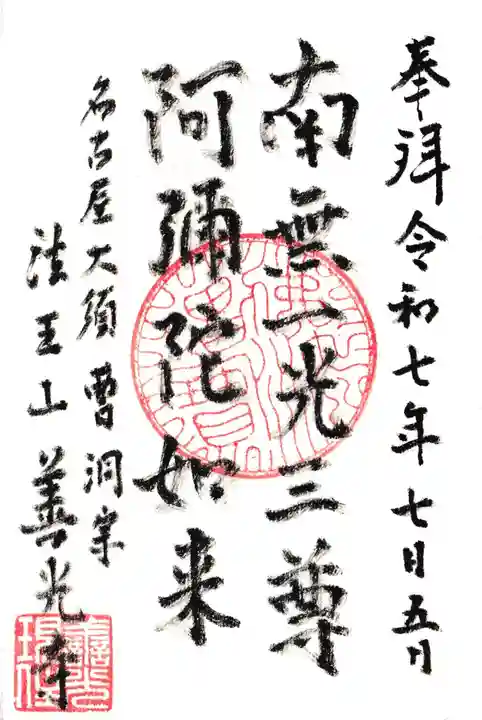 奉拝 令和七年七月五日
南無一光三尊
阿彌陀如来
名古屋大須 曹洞宗
法王山 善光寺